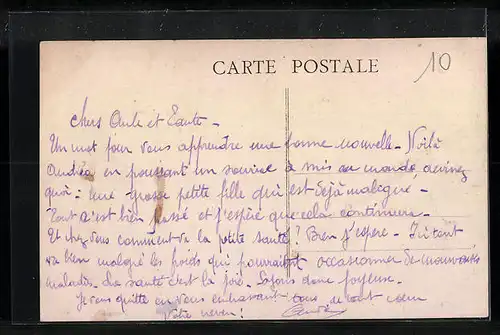 CARTE POSTALE
10
Chers Oncle et Tante -
Un mot pour vous apprendre une bonne nouvelle - Voilà
Andréa en poussant un sourire a mis au monde, devinez
quoi : une grosse petite fille qui est déjà
Tout s'est bien passé et j'espère que cela continuera -
Et chez vous comment va la ptite santé ? Bien j'espère - Ici tout
va bien malgré les froids qui pourraient occasionner de mauvaises
maladies. La santé c'est la joie. Soyons donc joyeuse.
Je vous quitte en vous embrassant tous de tout cœur
Votre neveu !